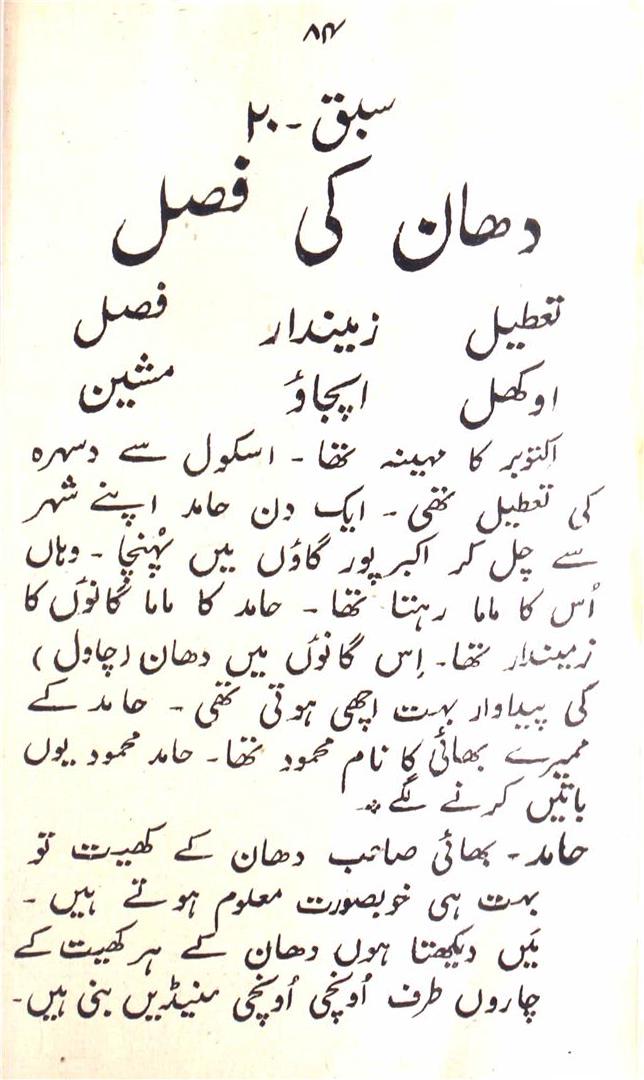 ۸۴
سبق ۔ ۲۰
دھان کی فصل
تعطیل زمیندار فصل
اوکھل اپجاؤ مشین
اکتوبر کا مہینہ تھا ۔ اسکول سے دسہرہ
کی تعطیل تھی ۔ ایک دن حامد اپنے شہر
سے چل کر اکبر پور گاؤں میں پہُنچا ۔ وہاں
اُس کا ماما رہتا تھا ۔ حامد کا ماما گانوٗں کا
زمیندار تھا ۔ اِس گانوٗں میں دھان (چاول)
کی پیداوار بہت اچھی ہوتی تھی ۔ حامد کے
ممیرے بھائی کا نام محمود تھا ۔ حامد محمود یوں
باتیں کرنے لگے ۔
حامد ۔ بھائی صاحب دھان کے کھیت تو
بہت ہی خوبصورت معلوم ہوتے ہیں ۔
مَیں دیکھتا ہوں دھان کے ہر کھیت کے
چاروں طرف اُونچی اُونچی منیڈیں بنی ہیں ۔